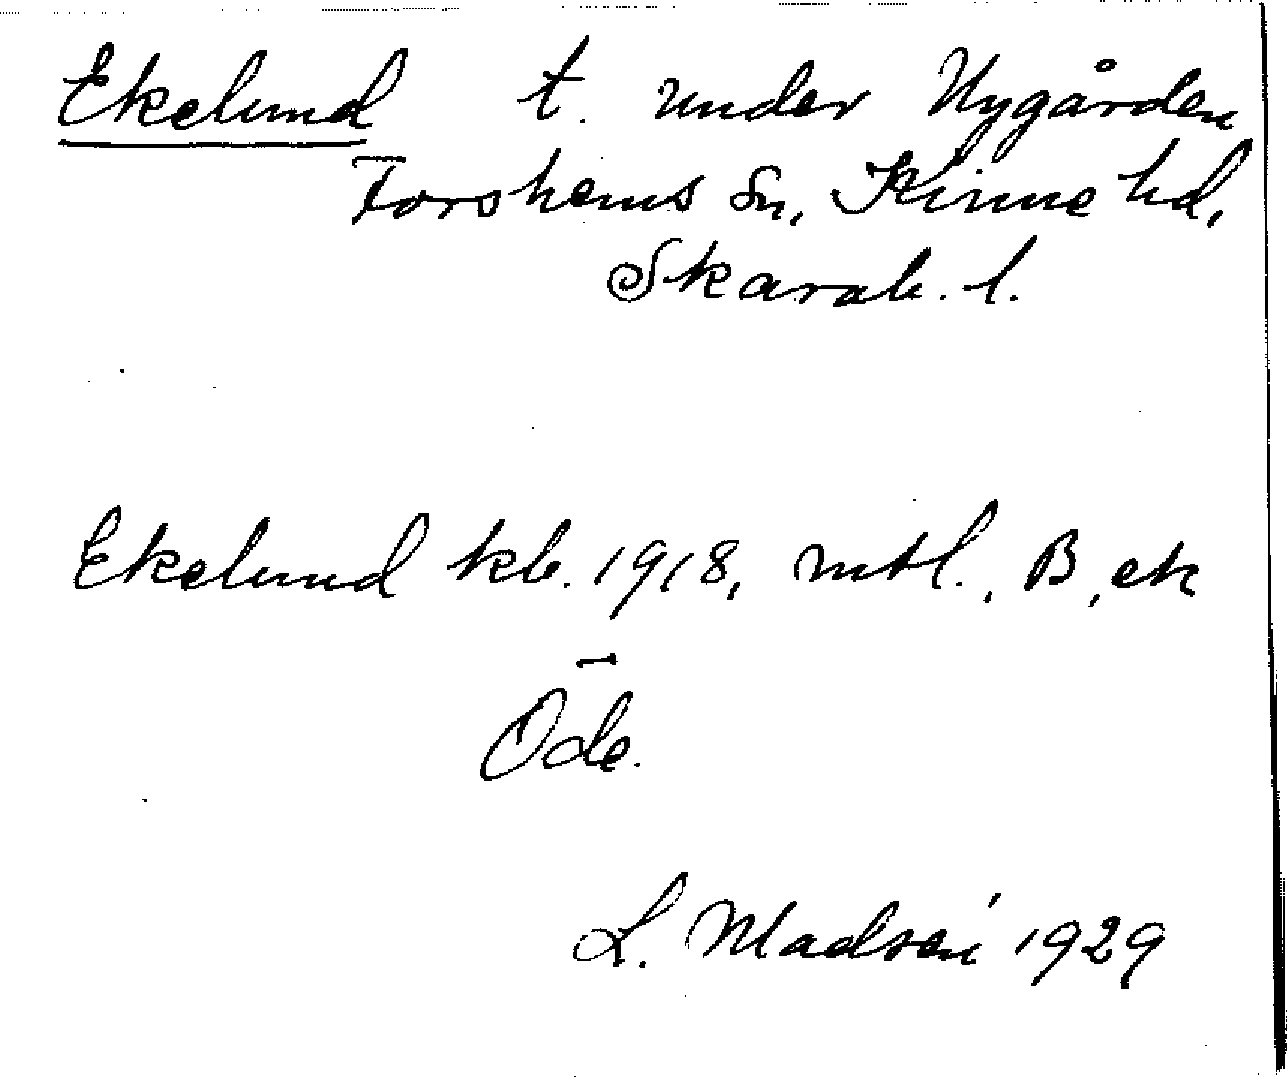 Ekelund t. under Nygården
Forshems Sn, Kinne hd,
Skarab. l.
Ekelund kb. 1918, mtl., B, ek
Öde.
L. Madsén 1929